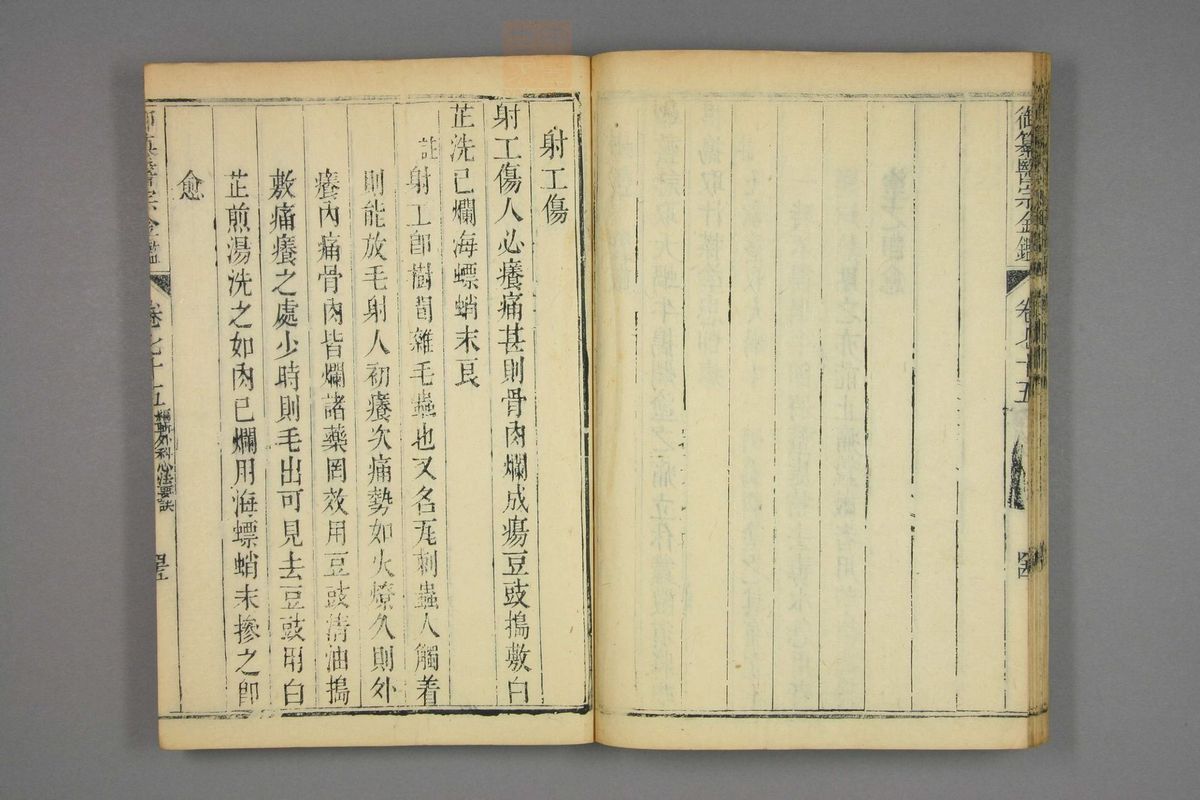 御纂醫宗金鑑
卷七十五
射工傷
射工傷人必癢痛甚則骨肉爛成瘍豆豉搗敷白
芷洗已爛海螵蛸末良
註射工卽樹間雜毛蟲也又名瓦刺蟲人觸着
則能放毛射人初癢次痛勢如火燎久則外
癢內痛骨肉皆爛諸藥罔效用豆豉淸油搗
敷痛癢之處少時則毛出可見去豆豉用白
芷煎湯洗之如肉已爛用海螵蛸末摻之卽
愈
醫宗金鑑
卷七十五
編輯外科心法要訣